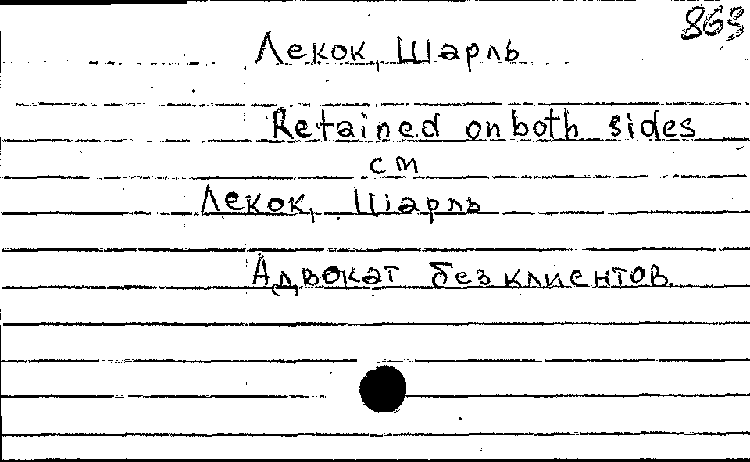 863
Лекок, Шарль
Retained on both sides
см
Лекок, Шарль
Адвокат без клиентов.